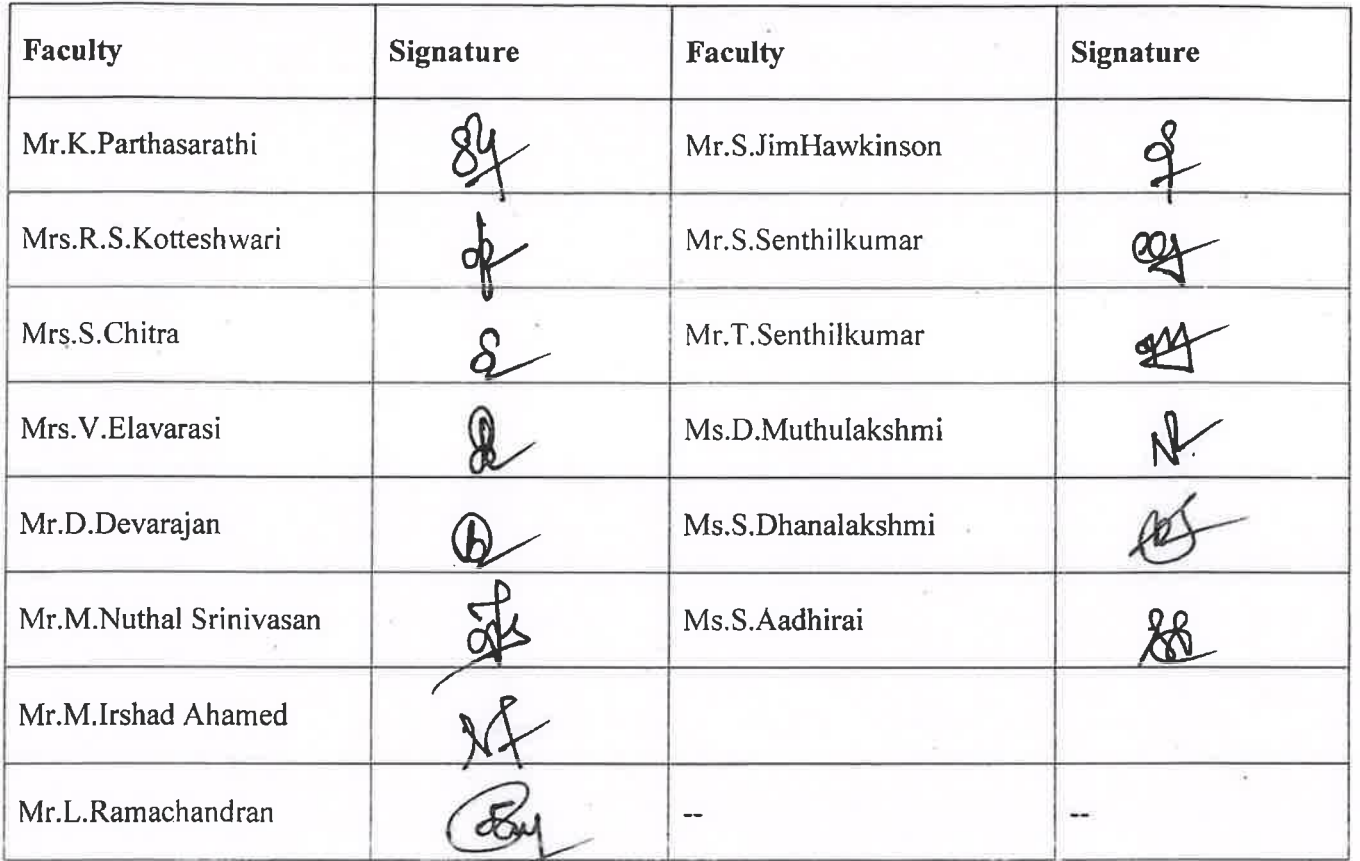 Faculty Signature Faculty Signature
Mr.K.Parthasarathi Mr.S.JimHawkinson
Mrs.R.S.Kotteshwari Mr.S.Senthilkumar
Mrs.S.Chitra Mr.T.Senthilkumar
Mrs.V.Elavarasi Ms.D.Muthulakshmi
Mr.D.Devarajan Ms.S.Dhanalakshmi
Mr.M.Nuthal Srinivasan Ms.S.Aadhirai
Mr.M.Irshad Ahamed
Mr.L.Ramachandran -- --